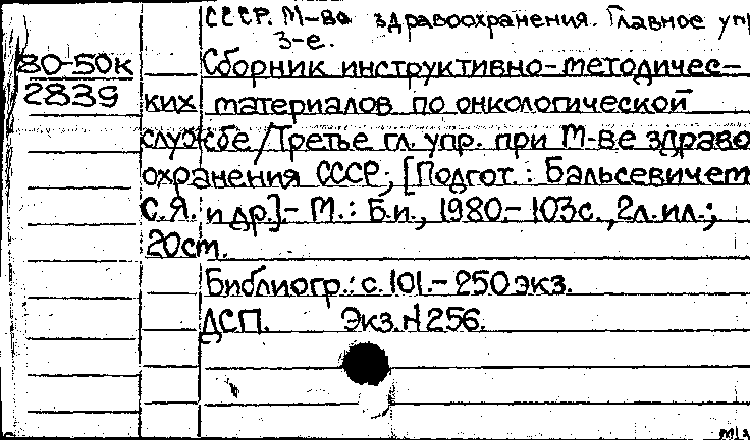 СССР. М-во здравоохранения. Главное уп
3-е.
80-50к
2839
Сборник инструктивно-методичес-
ких материалов по онкологической
службе/Третье гл. упр. при М-ве здраво
охранения СССР; [Подгот.: Бальсевичем
С.Я. и др.].- М.: Б.и., 1980.- 103с., 2л.ил.;
20см.
Библиогр.: с. 101.- 250 экз.
ДСП. Экз. N 256.